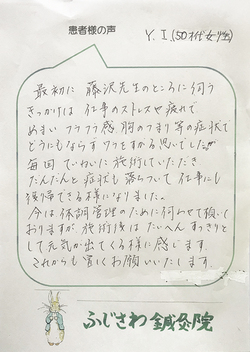 患者様の声
Y. I (50代女性)
最初に 藤沢先生のところに伺う
きっかけは 仕事のストレスや疲れで
めまい フラフラ感 胸のつまり等の症状で
どうにもならず ワラをすがる思いでしたが
毎回 ていねいに施術していただき
だんだんと 症状も落ちついて 仕事にも
復帰できる様になりました。
今は 体調管理のために伺わせて頂いて
おりますが 施術後は たいへん すっきりと
して 元気が出てくる様に感じます。
これからも 宜しくお願いいたします。
ふじさわ鍼灸院